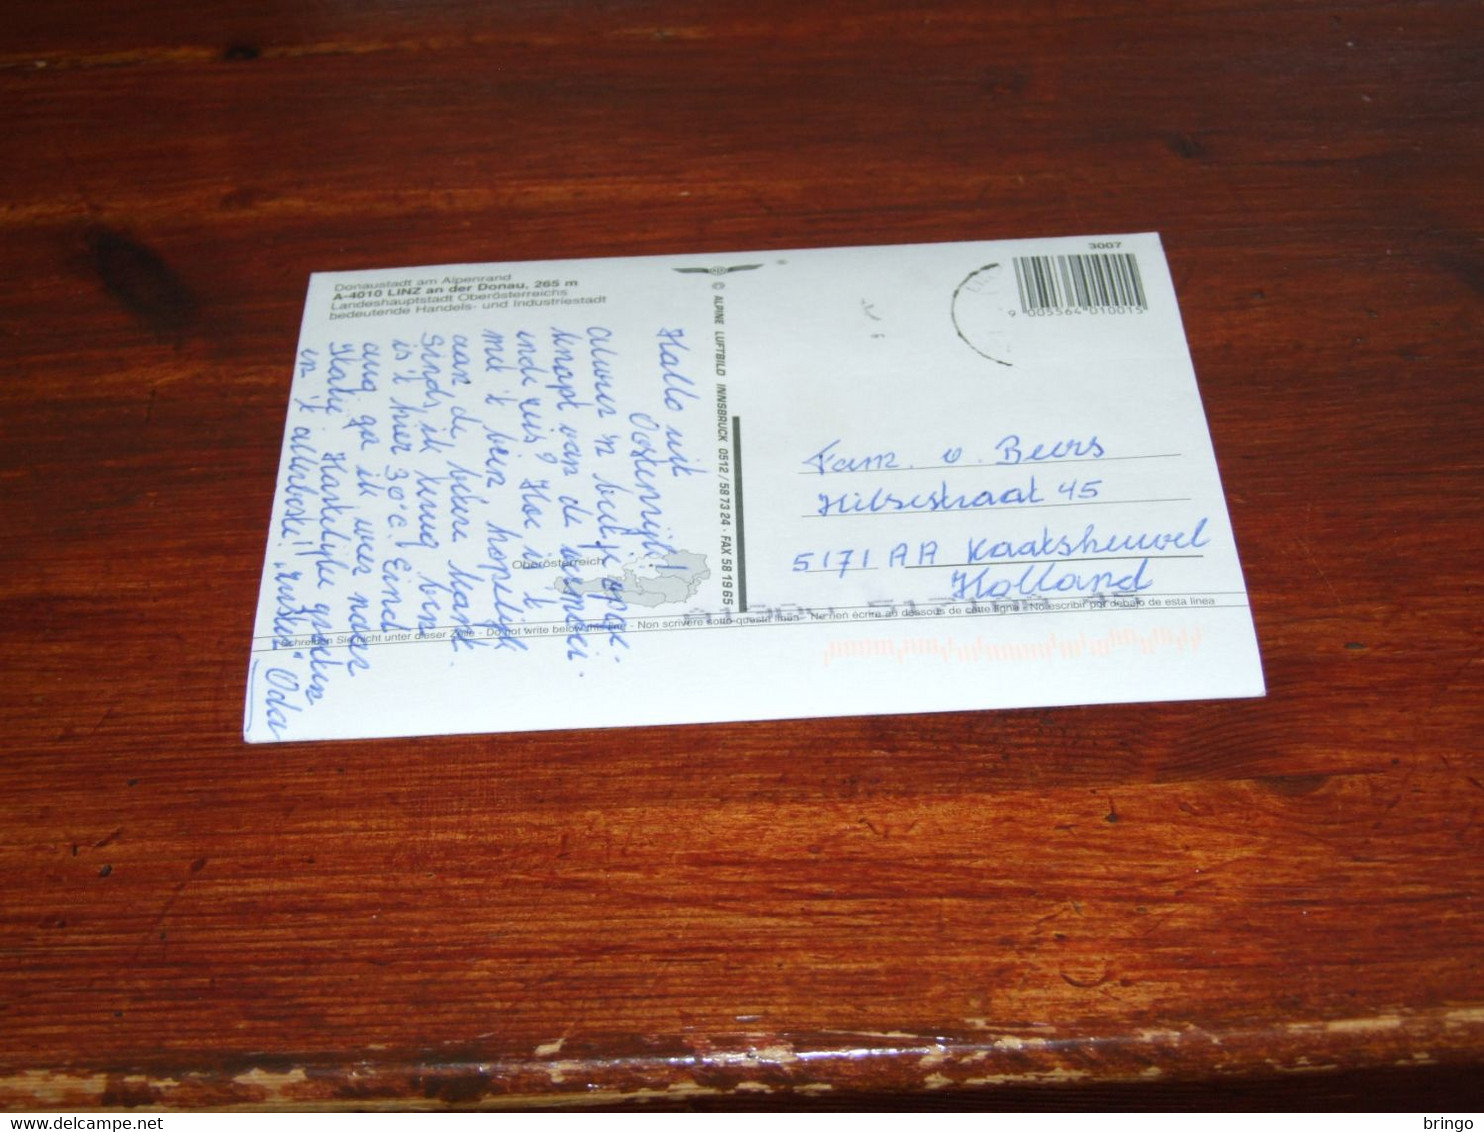 3007
Donaustadt am Alpenrand
A-4010 LINZ an der Donau, 265 m
Landeshauptstadt Oberösterreichs
bedeutende Handels- und Industriestadt
9 005564 010015
© ALPINE LUFTBILD INNSBRUCK 0512/58 73 24 · FAX 58 19 65
Hallo uit
Oostenrijk!
Alweer 'n beetje
knapt van de
reis? Hoe is 't
met 't been hopelijk
aan de betere kant.
Sinds ik terug ben
is 't hier 30°C. Eind
aug ga ik weer naar
Hartelijke groeten
en 't allerbeste!
Oda
Fam. v. Beers
Hilsestraat 45
5171 AA Kaatsheuvel
Holland
Oberösterreich
Schreiben Sie nicht unter dieser Zeile - Do not write below this line - Non scrivere sotto questa linea - Ne rien écrire au dessous de cette ligne - No escribir por debajo de esta linea
delcampe.net
bringo